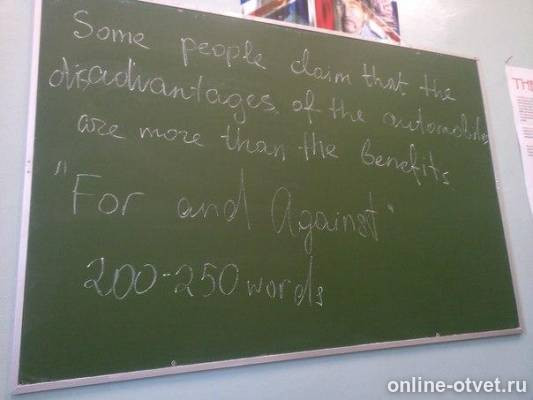 Some people claim that the
disadvantages of the automobiles
are more than the benefits
"For and Against"
200-250 words
THE
online-otvet.ru